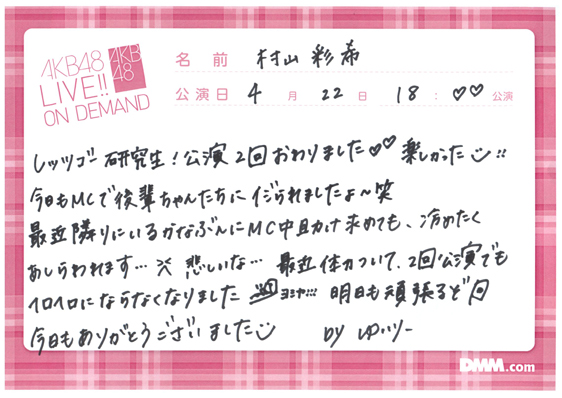 AKB48
LIVE!!
ON DEMAND
AKB
48
名前 村山彩希
公演日 4月22日 18:♡♡公演
レッツゴー研究生!公演2回おわりました♡♡ 楽しかった!!
今日もMCで後輩ちゃんたちにイジられましたよ〜笑
最近隣りにいるかなぶんにMC中助け求めても、冷めたく
あしらわれます…× 悲しいな… 最近体力ついて、2回公演でも
ヘロヘロにならなくなりました ヨシャ!!! 明日も頑張るぞ
今日もありがとうございました by ゆいりー
DMM.com